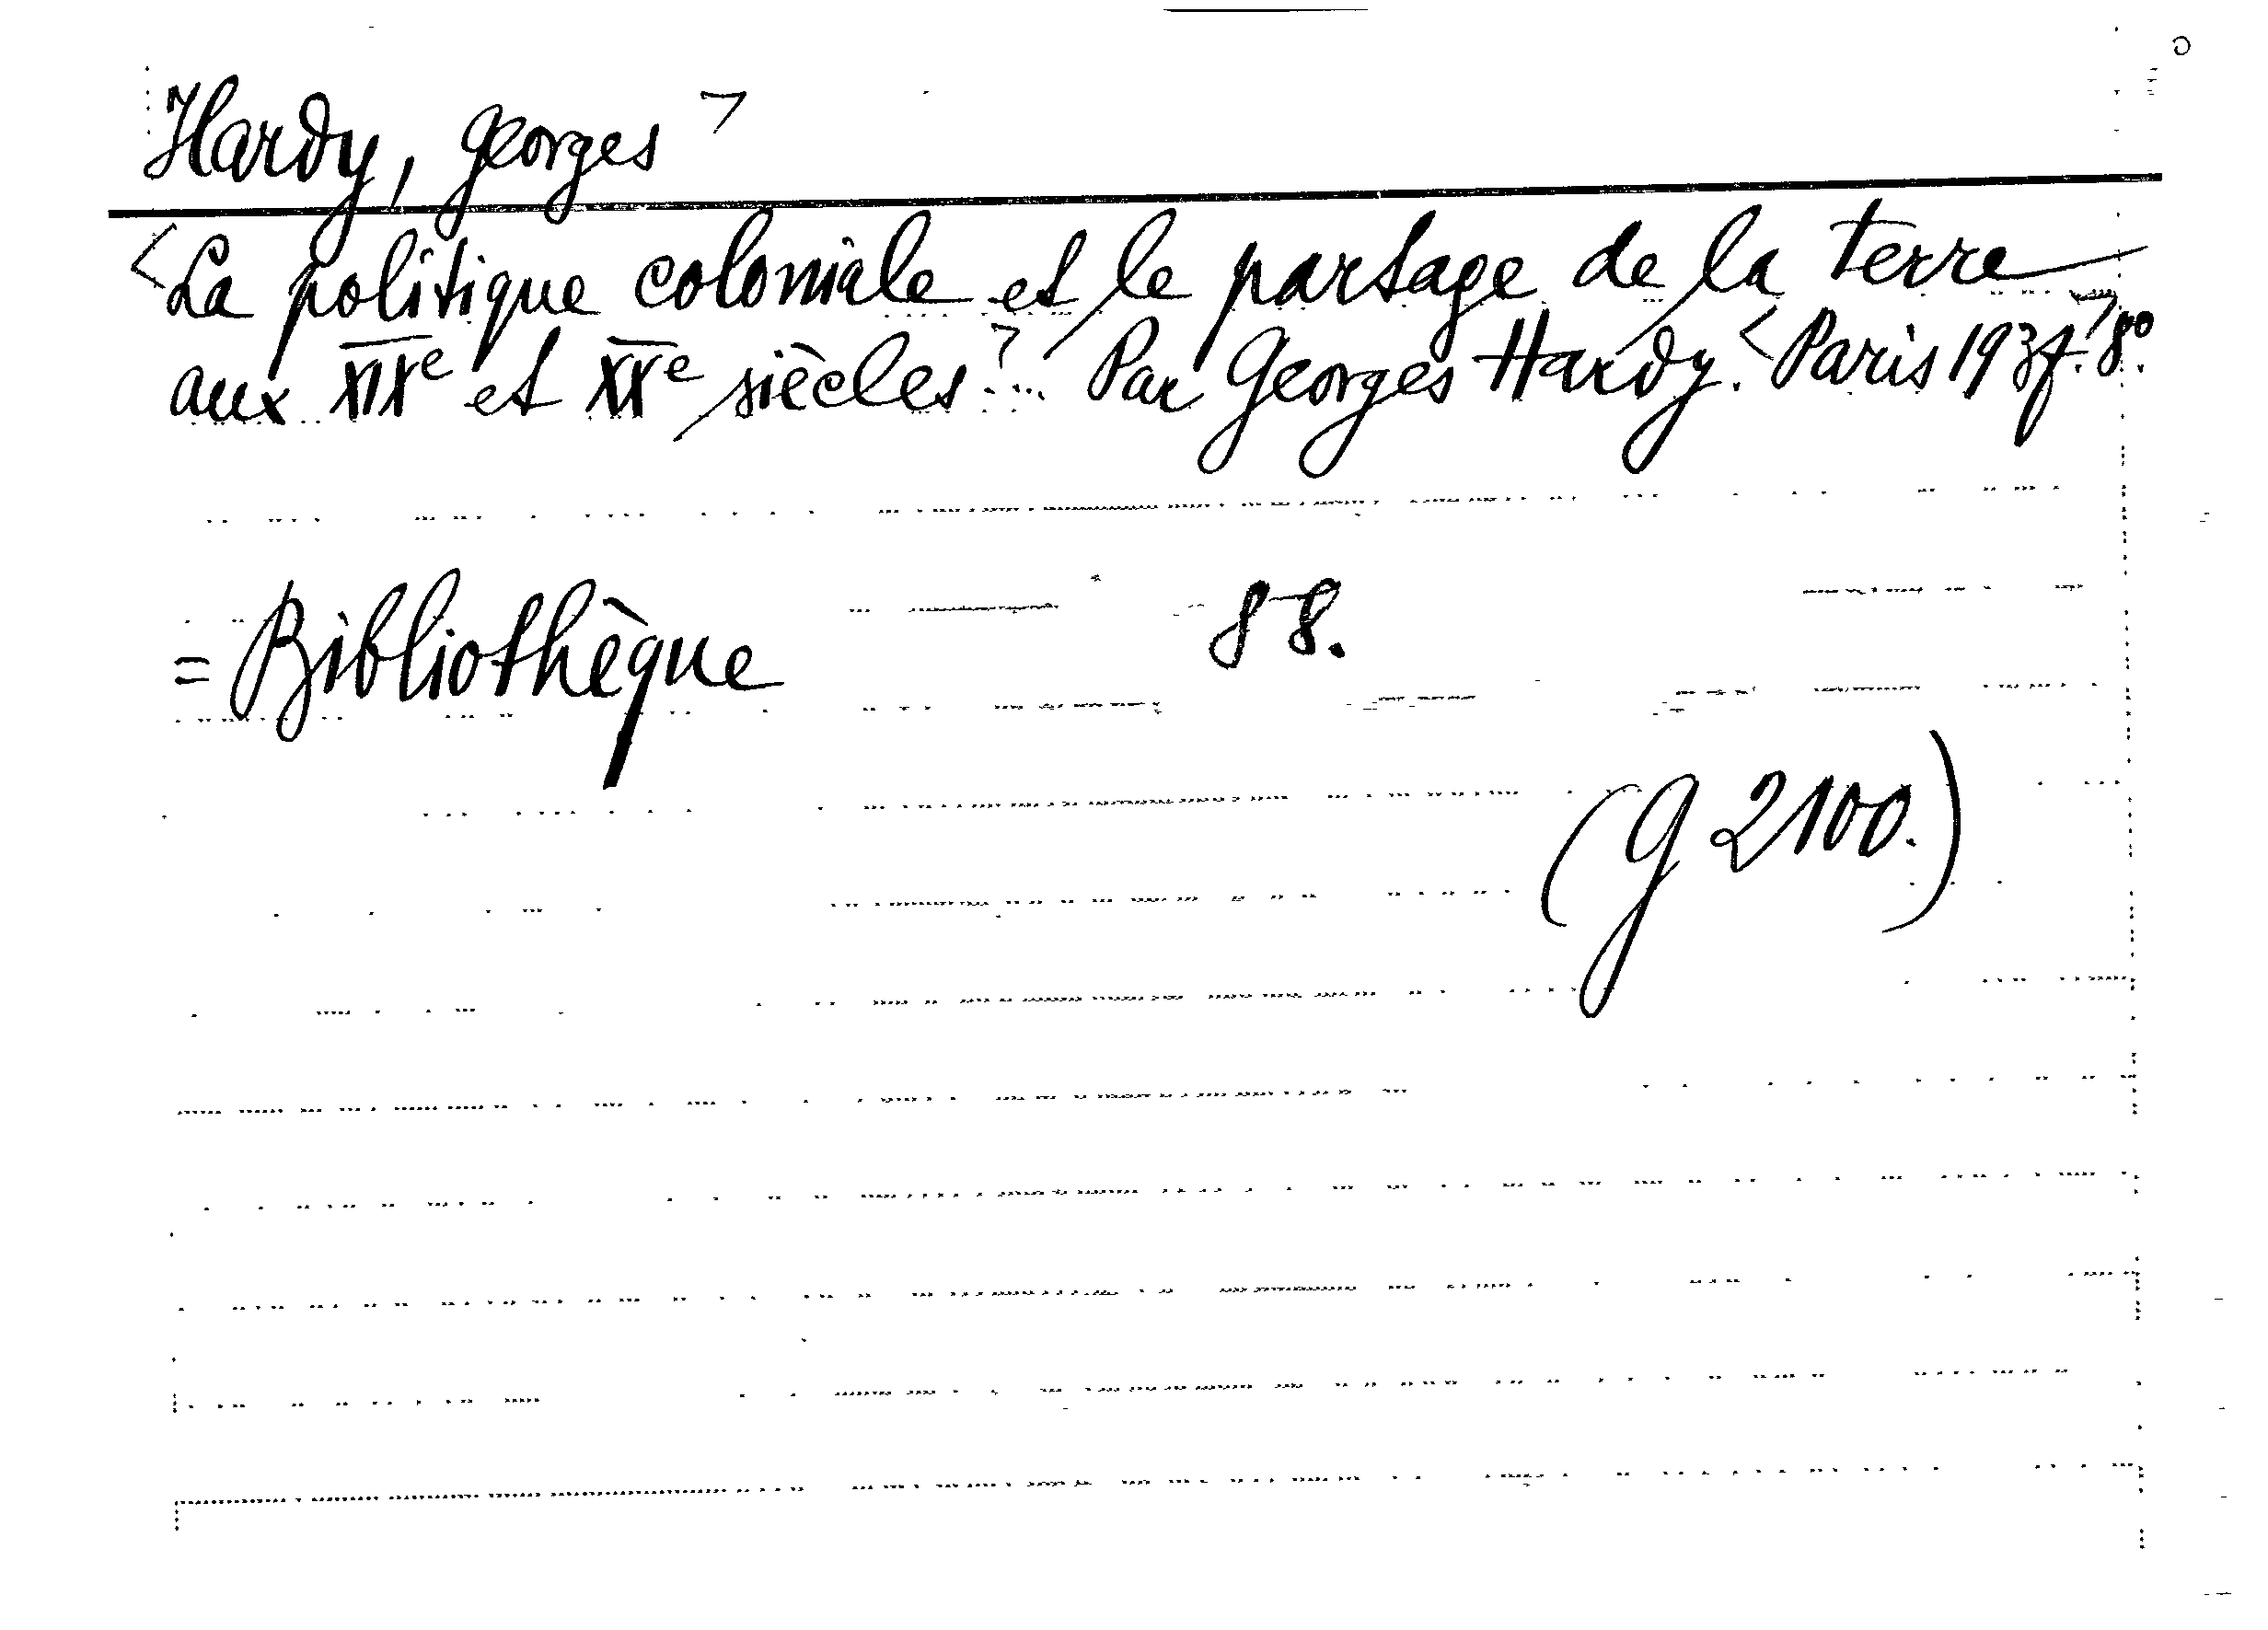 Hardy, Georges >
<La politique coloniale et le partage de la terre
aux XIXe et XXe siècles>... Par Georges Hardy. <Paris 1937.> 8°.
= Bibliothèque 88.
(G 2100.)